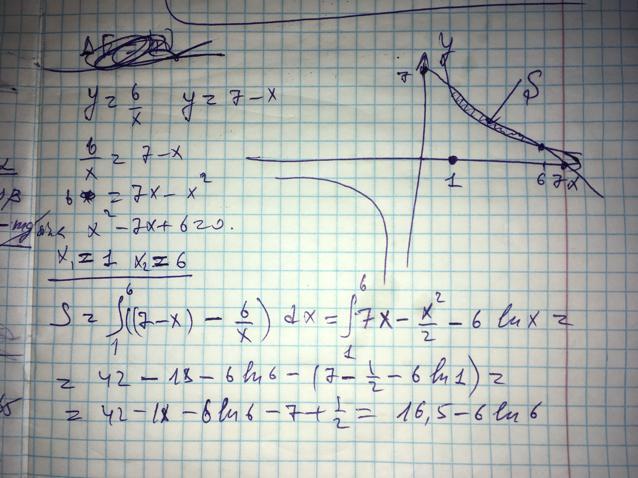 y = 6/x y = 7 - x
6/x = 7 - x
6 = 7x - x²
x² - 7x + 6 = 0.
x₁ = 1 x₂ = 6
S = ∫₁⁶ ((7-x) - 6/x) dx = ∫₁⁶ 7x - x²/2 - 6 ln x =
= 42 - 18 - 6 ln 6 - (7 - 1/2 - 6 ln 1) =
= 42 - 18 - 6 ln 6 - 7 + 1/2 = 16,5 - 6 ln 6
y
7
S
1
6 7 x